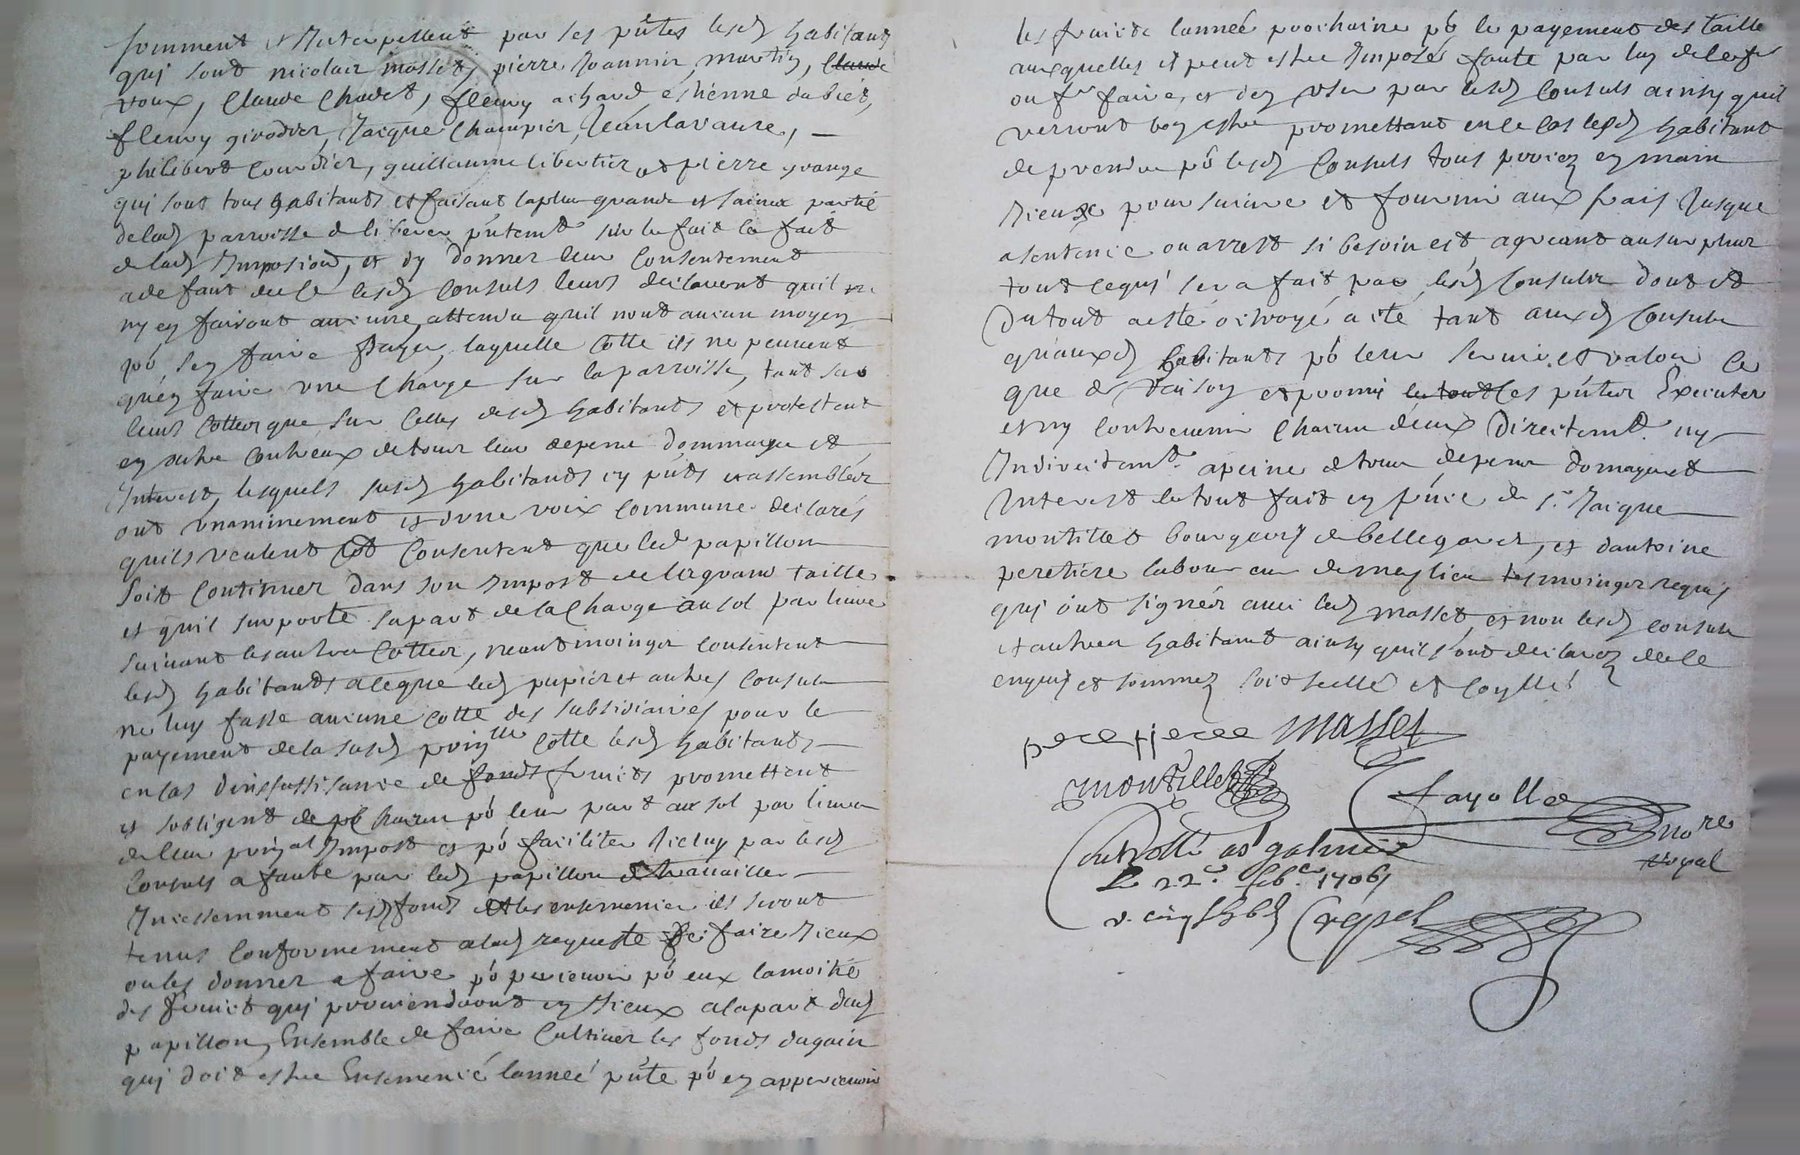 somment et Interpellent par ses p̃ntes lesd habitants
quj sont nicolas masset, pierre Joannin, martin, claude
roux, Claude Chavet, fleury achard, estienne dubiet,
fleury girodier, Jacque Champier, Jean lavaure,
philibert Courdier, guillaume libertier et pierre grange
quj sont tous habitants et faisant la plus grande et saine partie
de lad parroisse deliberer p̃ntemt sur le fait le fait
de lad Imposion, et dy donner leur Consentement
a defaut de ce lesd Consuls leurs declarent quil ne
ny en faisont aucune, attendu quil nont aucun moyen
po' sen faire payer, laquelle Cotte ils ne peuvent
quen faire une Charge sur la parroisse, tant sur
leurs Cottes que sur Celles desd habitants et protestent
en outre Contreux de tous leur depens dommages et
Interest, lesquels susd habitants icy p̃nts et assemblés
ont unanimement et dune voix Commune declarés
quils veulent et Consentent que led papillon
soit Continuer dans son Impost de la grand taille
et quil surporte sa part de la Charge au sol par livre
suivant les autres Cottes, neantmoinger Consentent
lesd habitants a ce que led pupier et autres Consuls
ne luy fasse aucune Cotte des subsidiaires pour le
payement de la susd prinlle Cotte lesd habitants
en cas dinsuffisance de fonds fruits promettent
et sobligent de po' Chacun po' leur part au sol par livre
de leur prinal Impost et po' faciliter Iceluy par lesd
Consuls a faute par led papillon de travailler
Incessemment sesd fonds et les ensemencer ils seront
tenus Conformement a lad requeste de faire Iceux
ou les donner a faire po' percevoir po' eux la moitié
des fruict quj proviendront en Iceux a la part dud
papillon, Ensemble de faire Cultiver les fonds dagain
quj doit estre Ensemencé lanneé p̃nte po' en appercevoir
les fruict de lanneé prochaine po' le payement des taille
auxquelles il peut estre Imposé faute par luy de le fe
ou fr faire, et den user par lesd Consuls ainsy quil
verront bon estre promettant en ce Cas lesd habitant
de prendre po' lesd Consuls tous procez en main
Iceux poursuivre et fournir aux frais Jusque
a sentence ou arrest si besoin est, agreant au surplus
tout ce quj sera fait par lesd Consuls dont et
Du tout a esté octroyé acte tant auxd Consuls
quauxd habitants po' leur servir et valoir Ce
que de raison et promis le tout Ces p̃ntes Executer
et ny Contrevenir Chacun deux Directemt ny
Indirectemt a peine de tous depens domages et
Interest le tout fait en p̃nce de sr Jacque
montillet bourgeois de bellegarde, et dantoine
peretiere laboureur de meylieu tesmoinger requis
quj ont signés avec led masset, et non lesd consuls
et autres habitant ainsy quils ont declarez de ce
enquis et sommez soit scellé et Coyllé
peretiere Masset
montillet
fayolle
Nore
Royal
Controllé a st galmier
Le 22e febr 1706
r. cinq s 6d Crespel